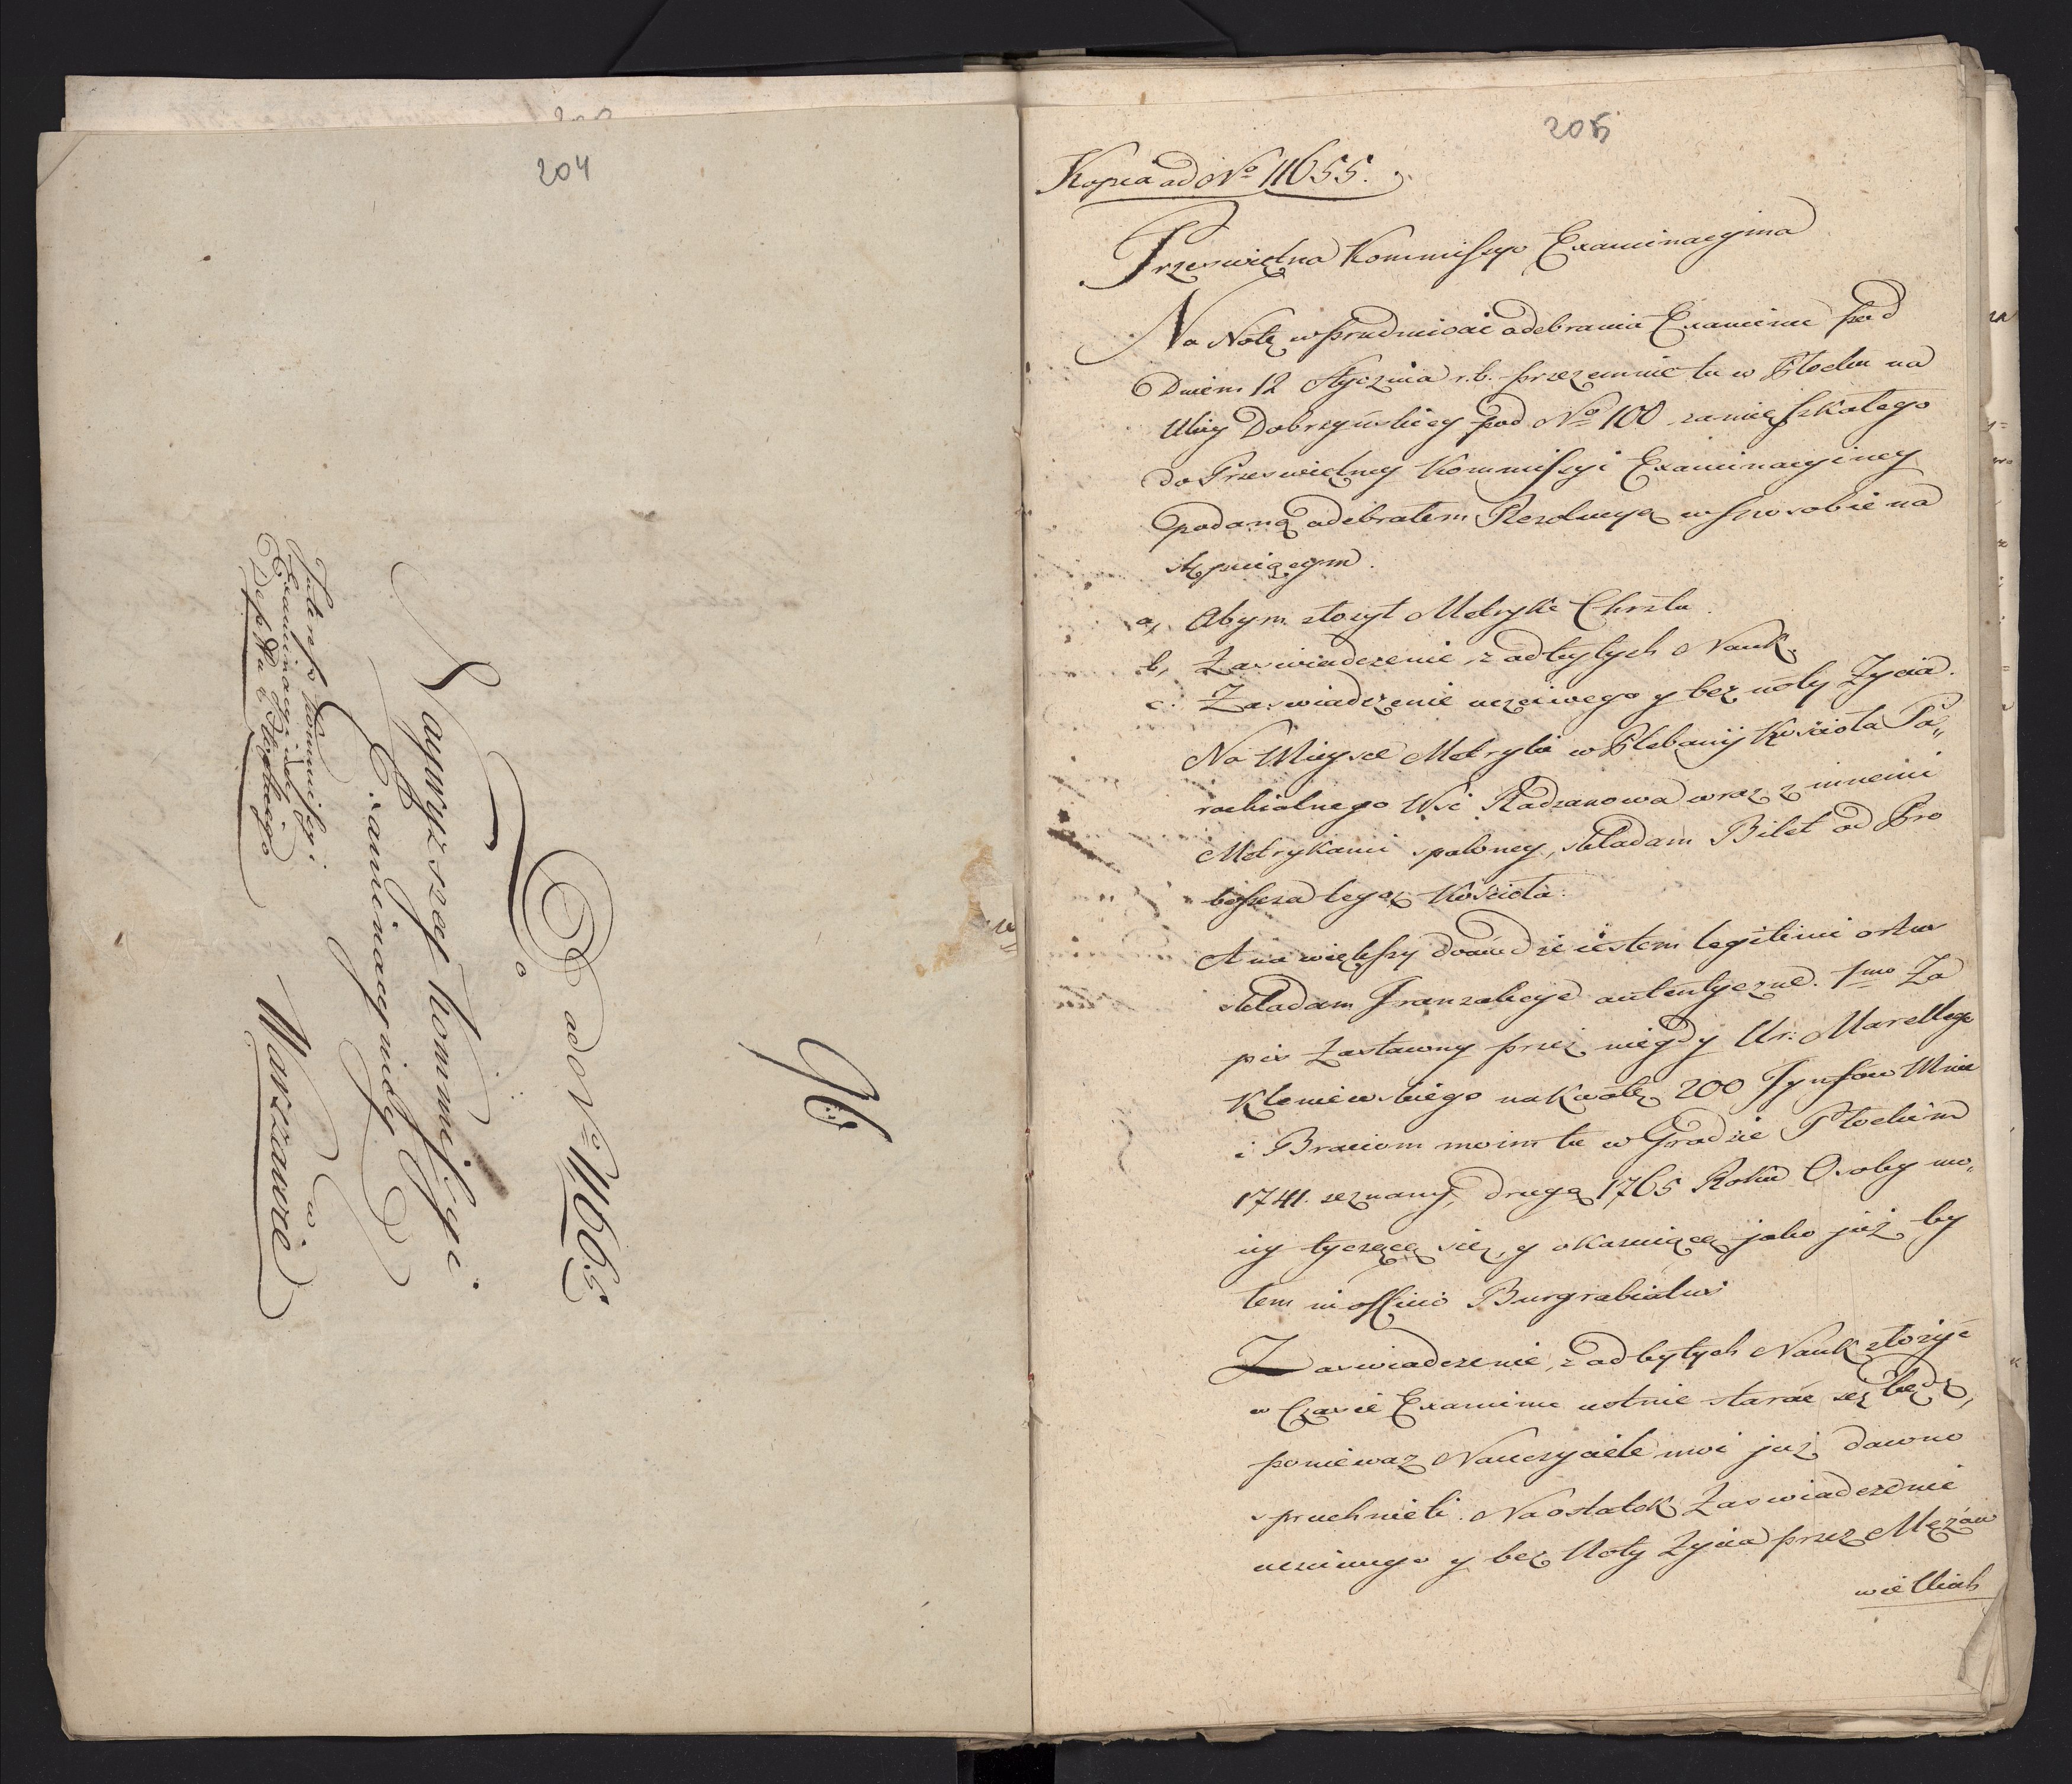 204
Do
ad No 11665
Naywyzszey Kommissyi
Examinacyiney
w
Warszawie
Interess Kommissyi
Examinacyiney
Dep. Płockiego
205
Kopia ad No 11655.
Prześwietna Kommissyo Examinacyina
Na Notę w przedmiocie odebrania Examinu pod
Dniem 12 Stycznia r.b. przezemnie tu w Płocku na
Ulicy Dobrzyńskiey pod No 100 zamięszkałego
do Prześwietney Kommissyi Examinacyiney
podaną odebrałem Rezolucyą w sposobie na
stępuiącym.
a, Abym złożył Metrykę Chrztu.
b, Zaswiadczenie z odbytych Nauk.
c. Zaswiadczenie uczciwego y bez noty Zycia.
Na Mieysce Metryki w Plebanij Kościoła Pa„
rachialnego Wsi Radzanowa wraz z innemi
Metrykami spaloney, składam Bilet od Pro
boszcza tegoż Kościoła.
A na większy dowód że iestem legitime ortus
składam Tranzakcye autentyczne. 1mo Za
pis Zastawny przez niegdy Ur: Marcellego
Kłoniewskiego na Kwotę 200 Tynfów Mnie
i Braciom moim tu w Grodzie Płockim
1741. zeznany, drugą 1765 Roku Osoby mo„
iey tyczącą się, y okazuiącą jako już by
łem in officio Burgrabiatus
Zaswiadczenie z odbytych Nauk złożyć
w Czasie Examinu ustnie starać się będę,
poniewaz Nauczyciele moi już dawno
spruchnieli. Naostatek Zaswiadczenie
uczciwego y bez Noty Zycia przez Mężów
wielkich